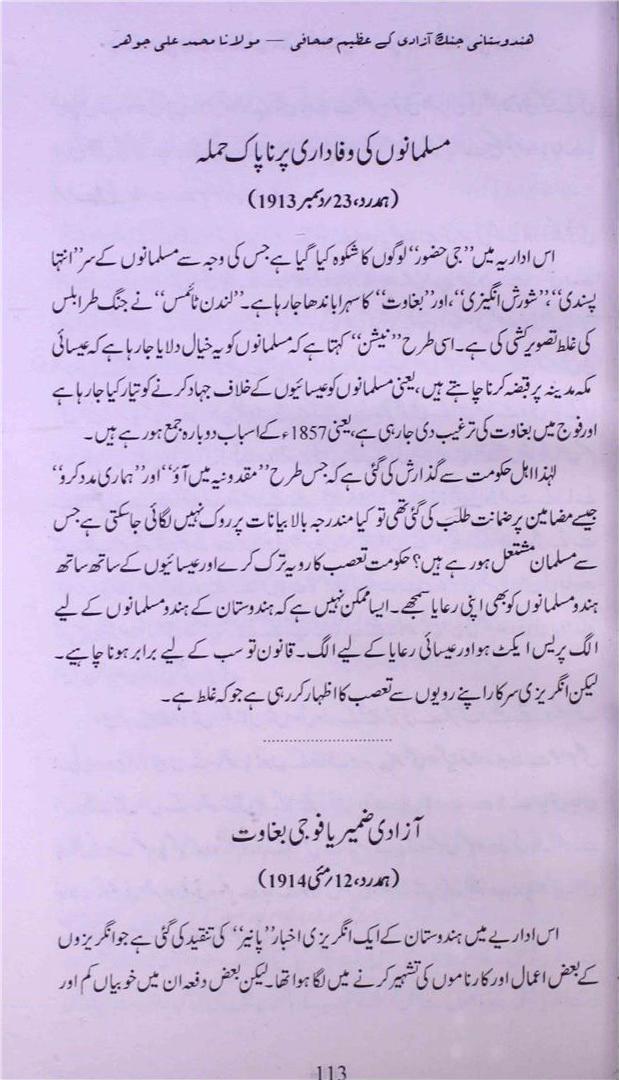 ہندوستانی جنگ آزادی کے عظیم صحافی — مولانا محمد علی جوہر
مسلمانوں کی وفاداری پر ناپاک حملہ
(ہمدرد، 23/دسمبر 1913)
اس اداریہ میں ”جی حضور“ لوگوں کا شکوہ کیا گیا ہے جس کی وجہ سے مسلمانوں کے سر ”انتہا
پسندی“، ”شورش انگیزی“، اور ”بغاوت“ کا سہرا باندھا جا رہا ہے۔ ”لندن ٹائمس“ نے جنگ طرابلس
کی غلط تصویر کشی کی ہے۔ اسی طرح ”نیشن“ کہتا ہے کہ مسلمانوں کو یہ خیال دلایا جا رہا ہے کہ عیسائی
مکہ مدینہ پر قبضہ کرنا چاہتے ہیں، یعنی مسلمانوں کو عیسائیوں کے خلاف جہاد کرنے کو تیار کیا جا رہا ہے
اور فوج میں بغاوت کی ترغیب دی جا رہی ہے، یعنی 1857ء کے اسباب دوبارہ جمع ہو رہے ہیں۔
لہٰذا اہل حکومت سے گذارش کی گئی ہے کہ جس طرح ”مقدونیہ میں آؤ“ اور ”ہماری مدد کرو“
جیسے مضامین پر ضمانت طلب کی گئی تھی تو کیا مندرجہ بالا بیانات پر روک نہیں لگائی جا سکتی ہے جس
سے مسلمان مشتعل ہو رہے ہیں؟ حکومت تعصب کا رویہ ترک کرے اور عیسائیوں کے ساتھ ساتھ
ہندو مسلمانوں کو بھی اپنی رعایا سمجھے۔ ایسا ممکن نہیں ہے کہ ہندوستان کے ہندو مسلمانوں کے لیے
الگ پریس ایکٹ ہو اور عیسائی رعایا کے لیے الگ۔ قانون تو سب کے لیے برابر ہونا چاہیے۔
لیکن انگریزی سرکار اپنے رویوں سے تعصب کا اظہار کر رہی ہے جو کہ غلط ہے۔
آزادی ضمیر یا فوجی بغاوت
(ہمدرد، 12/مئی 1914)
اس اداریے میں ہندوستان کے ایک انگریزی اخبار ”پانیر“ کی تنقید کی گئی ہے جو انگریزوں
کے بعض اعمال اور کارناموں کی تشہیر کرنے میں لگا ہوا تھا۔ لیکن بعض دفعہ ان میں خوبیاں کم اور
113